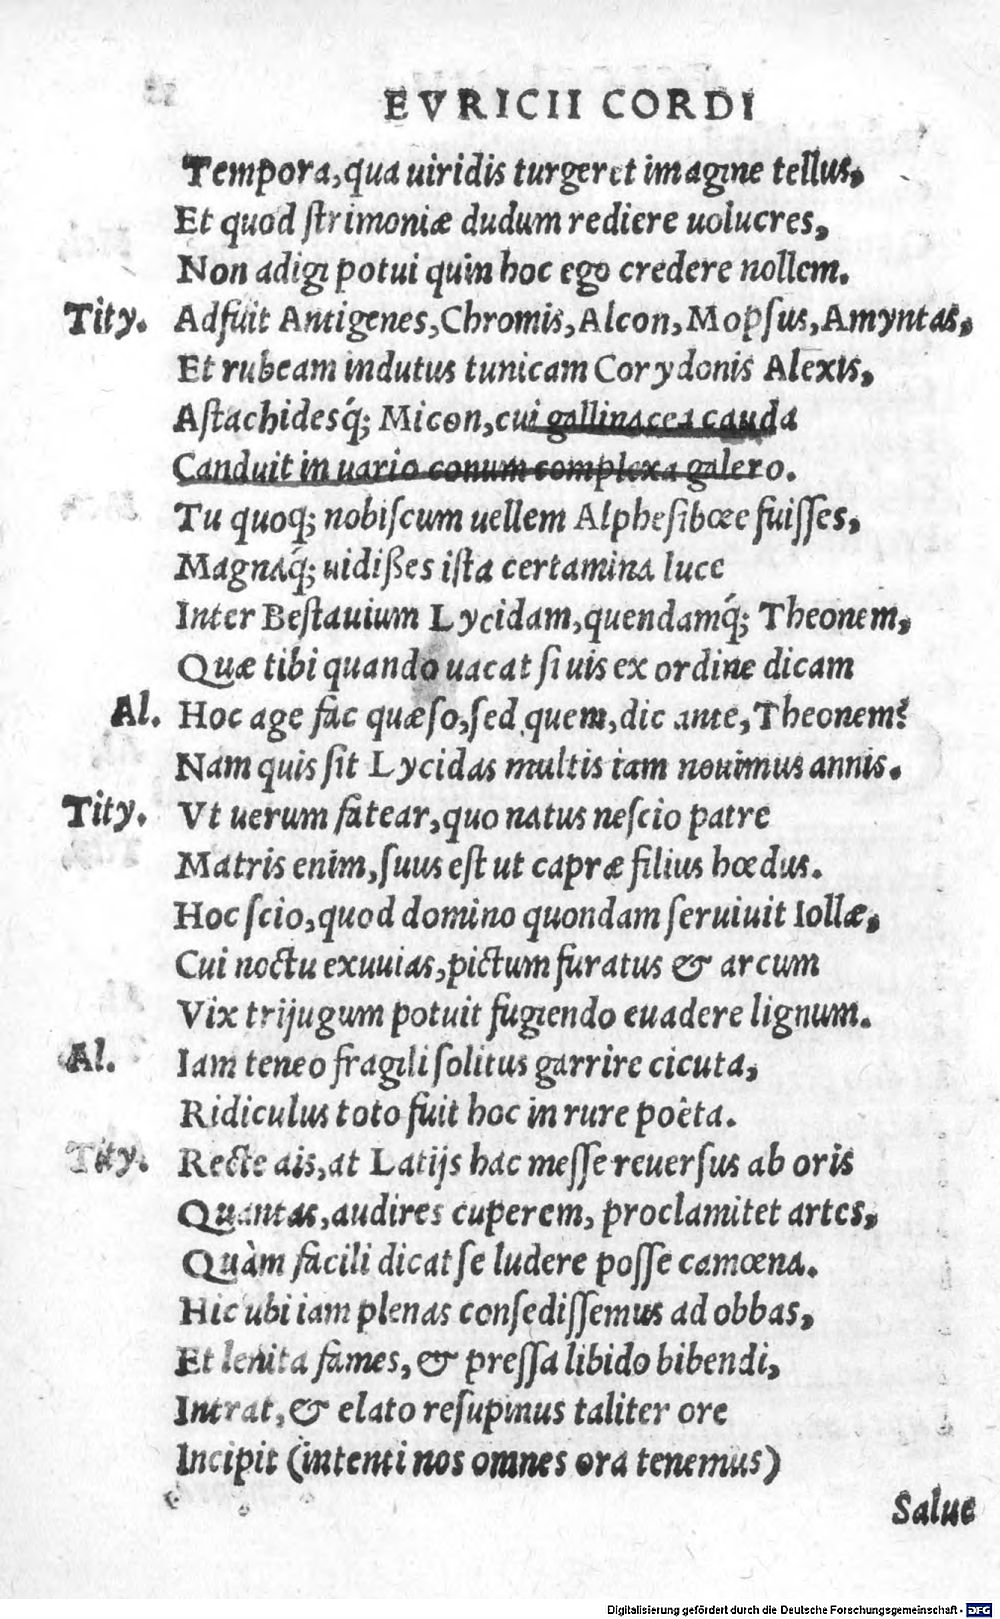 EVRICII CORDI
Tempora, qua uiridis turgeret imagine tellus,
Et quod ſtrimoniæ dudum rediere uolucres,
Non adigi potui quin hoc ego credere nollem.
Tity. Adfuit Antigenes, Chromis, Alcon, Mopſus, Amyntas,
Et rubeam indutus tunicam Corydonis Alexis,
Aſtachidesq́; Micon, cui gallinacea cauda
Canduit in uario conum complexa galero.
Tu quoq; nobiſcum uellem Alpheſibœe fuiſſes,
Magnaq́; uidißes iſta certamina luce
Inter Beſtauium Lycidam, quendamq́; Theonem,
Quæ tibi quando uacat ſi uis ex ordine dicam
Al. Hoc age fac quæſo, ſed quem, dic ante, Theonem?
Nam quis ſit Lycidas multis iam nouimus annis.
Tity. Vt uerum fatear, quo natus neſcio patre
Matris enim, ſuus eſt ut capræ filius hœdus.
Hoc ſcio, quod domino quondam ſeruiuit Iollæ,
Cui noctu exuuias, pictum furatus & arcum
Vix trijugum potuit fugiendo euadere lignum.
Al. Iam teneo fragili ſolitus garrire cicuta,
Ridiculus toto fuit hoc in rure poëta.
Tity. Recte ais, at Latijs hac meſſe reuerſus ab oris
Quantas, audires cuperem, proclamitet artes,
Quàm facili dicat ſe ludere poſſe camœna.
Hic ubi iam plenas conſediſſemus ad obbas,
Et lenita fames, & preſſa libido bibendi,
Intrat, & elato reſupinus taliter ore
Incipit (intenti nos omnes ora tenemus)
Salue
Digitalisierung gefördert durch die Deutsche Forschungsgemeinschaft - DFG